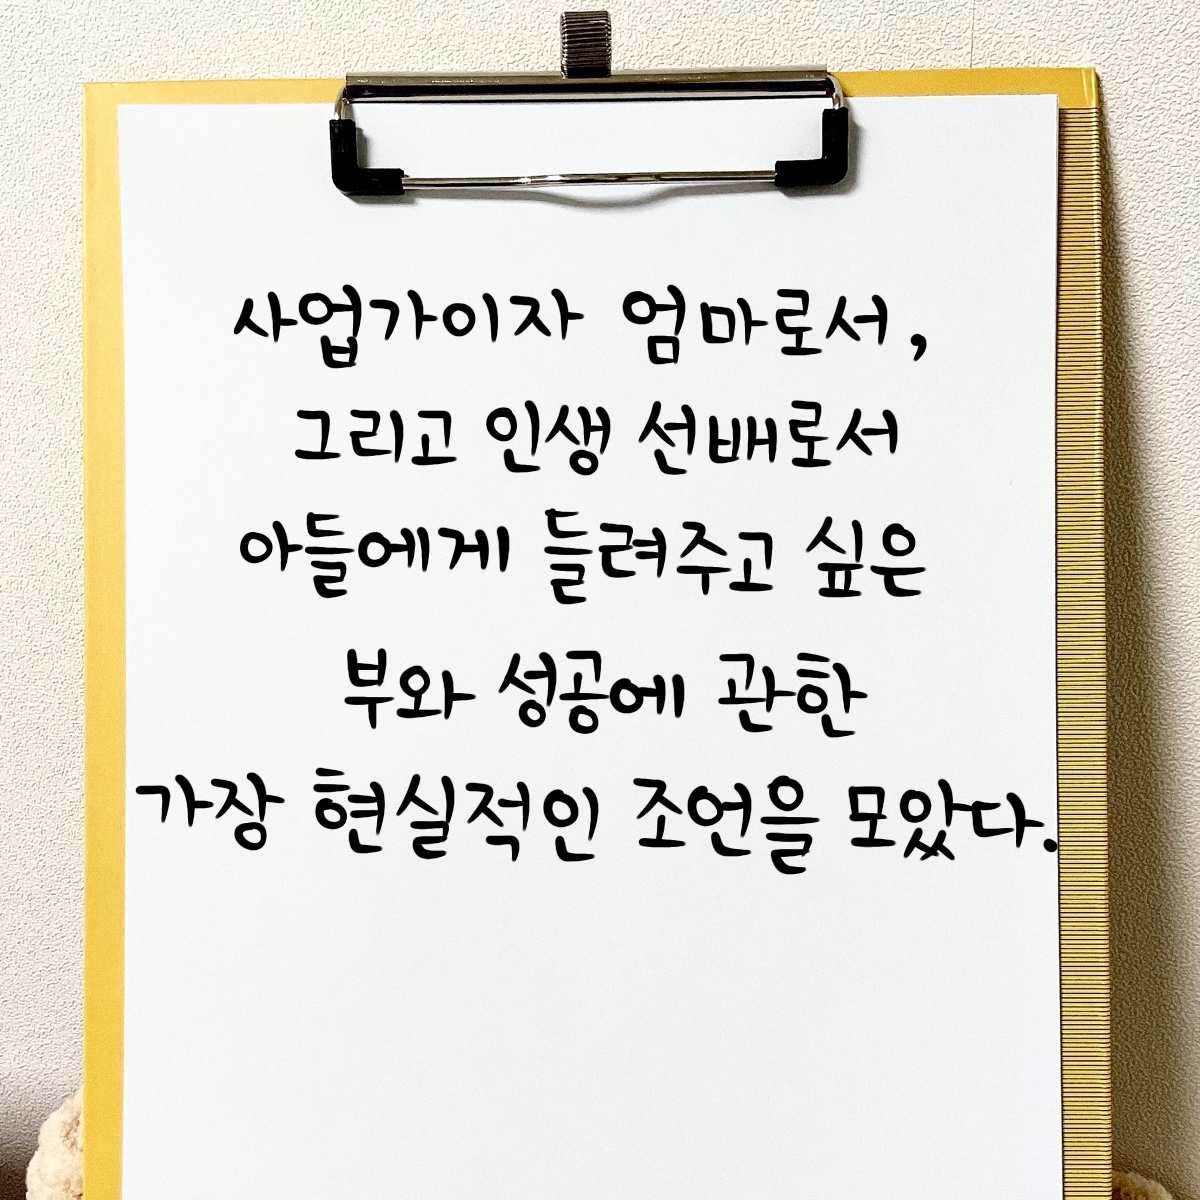 사업가이자 엄마로서,
그리고 인생 선배로서
아들에게 들려주고 싶은
부와 성공에 관한
가장 현실적인 조언을 모았다.